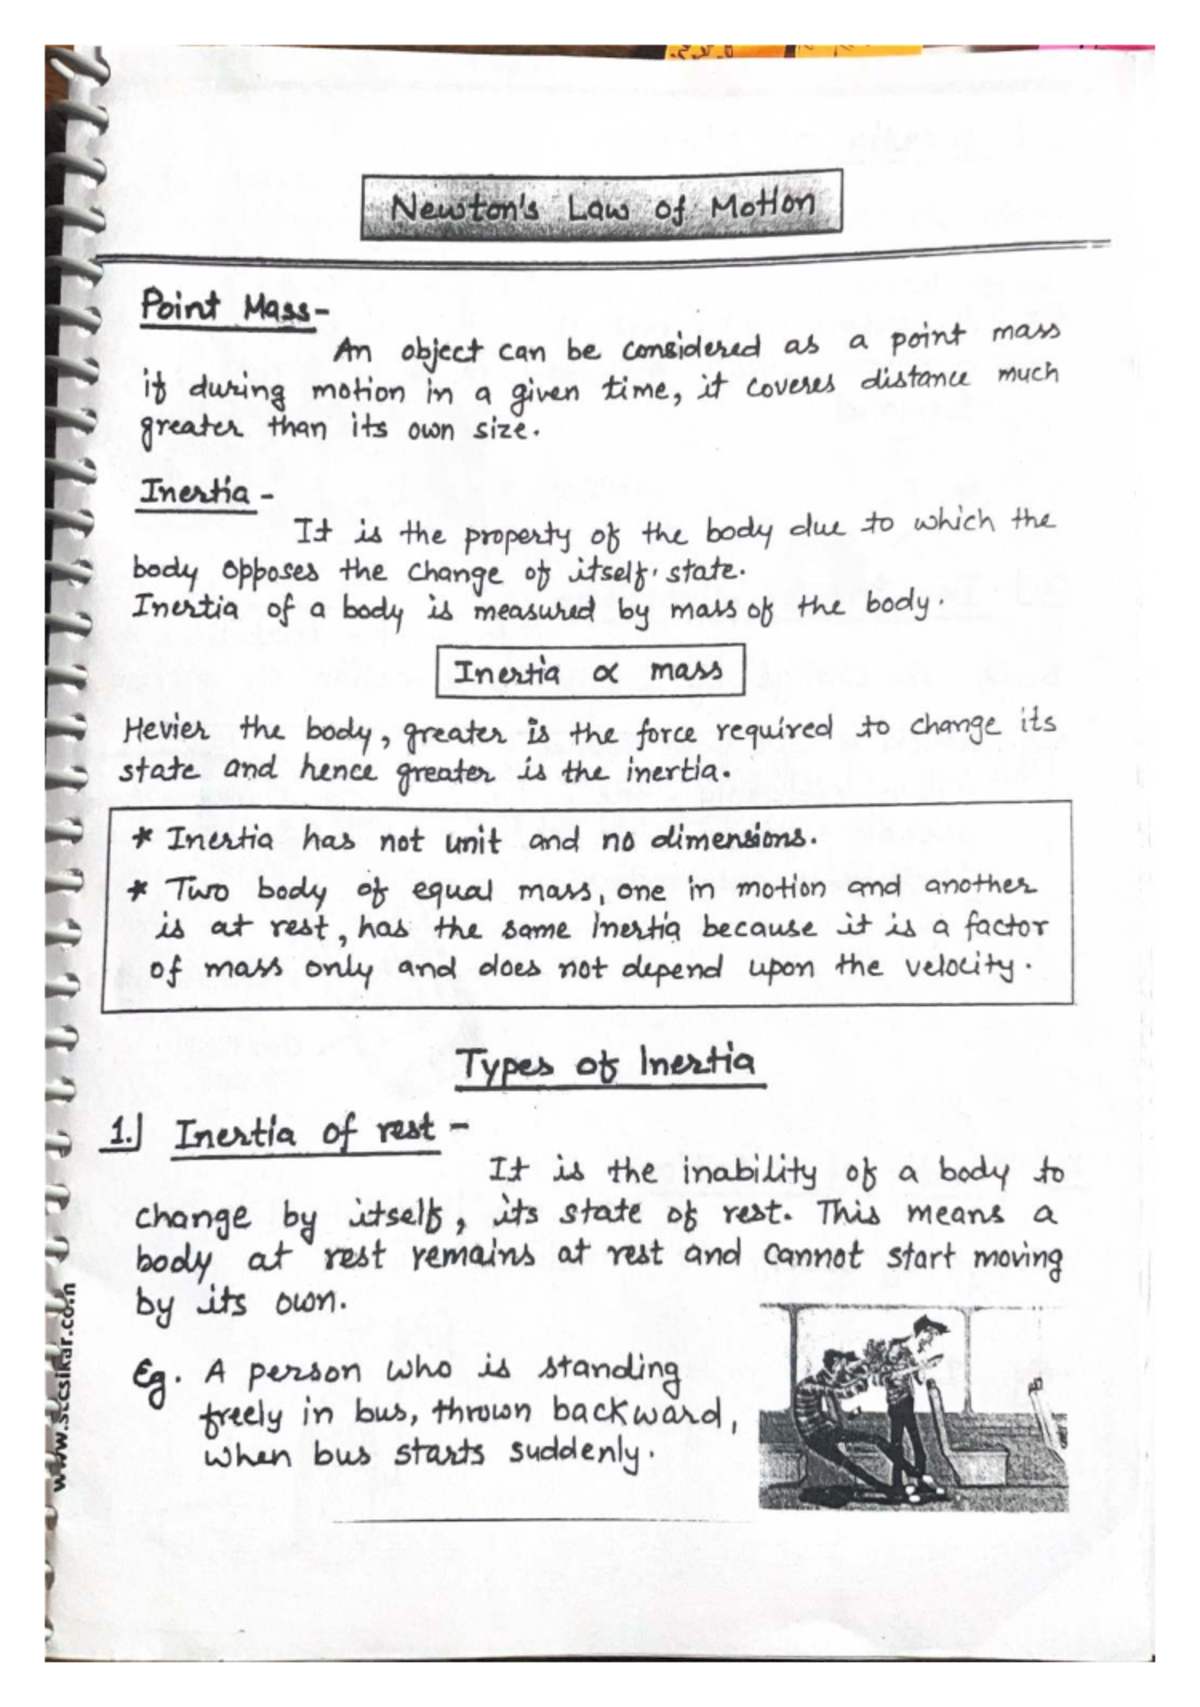 Newton's Law of Motion
Point Mass-
An object can be considered as a point mass
if during motion in a given time, it coveres distance much
greater than its own size.
Inertia -
It is the property of the body due to which the
body opposes the change of itself' state.
Inertia of a body is measured by mass of the body.
Inertia ∝ mass
Hevier the body, greater is the force required to change its
state and hence greater is the inertia.
* Inertia has not unit and no dimensions.
* Two body of equal mass, one in motion and another
is at rest, has the same Inertia because it is a factor
of mass only and does not depend upon the velocity.
Types of Inertia
1.] Inertia of rest -
It is the inability of a body to
change by itself, its state of rest. This means a
body at rest remains at rest and cannot start moving
by its own.
Eg. A person who is standing
freely in bus, thrown backward,
when bus starts suddenly.
www.stcsikar.com